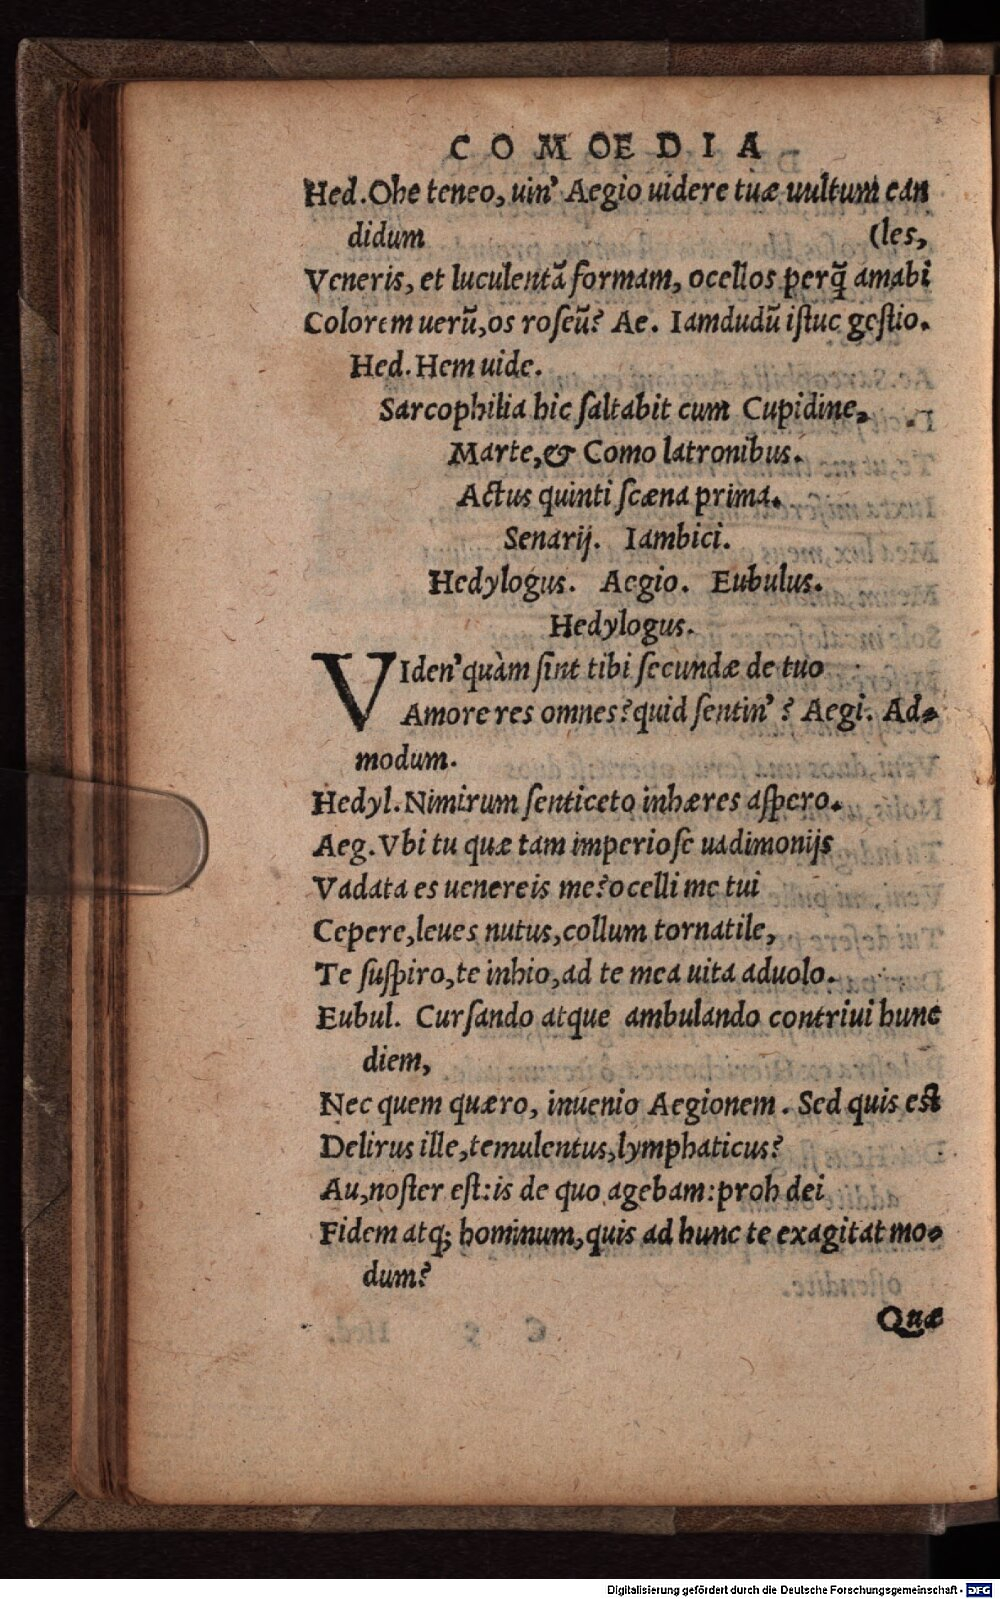 COMOEDIA
Hed. Ohe teneo, uin' Aegio uidere tuæ uultum can
didum (les,
Veneris, et luculentā formam, ocellos perq̃ amabi
Colorem uerũ, os roſeũ? Ae. Iamdudũ iſtuc geſtio.
Hed. Hem uide.
Sarcophilia hic ſaltabit cum Cupidine,
Marte, & Como latronibus.
Actus quinti ſcæna prima.
Senarij. Iambici.
Hedylogus. Aegio. Eubulus.
Hedylogus.
VIden' quàm ſint tibi ſecundæ de tuo
Amore res omnes? quid ſentin'? Aegi. Ad-
modum.
Hedyl. Nimirum ſenticeto inhæres aſpero.
Aeg. Vbi tu quæ tam imperioſe uadimonijs
Vadata es uenereis me? ocelli me tui
Cepere, leues nutus, collum tornatile,
Te ſuſpiro, te inhio, ad te mea uita aduolo.
Eubul. Curſando atque ambulando contriui hunc
diem,
Nec quem quæro, inuenio Aegionem. Sed quis eſt
Delirus ille, temulentus, lymphaticus?
Au, noſter eſt: is de quo agebam: proh dei
Fidem atq; hominum, quis ad hunc te exagitat mo-
dum?
Quæ
Digitalisierung gefördert durch die Deutsche Forschungsgemeinschaft - DFG